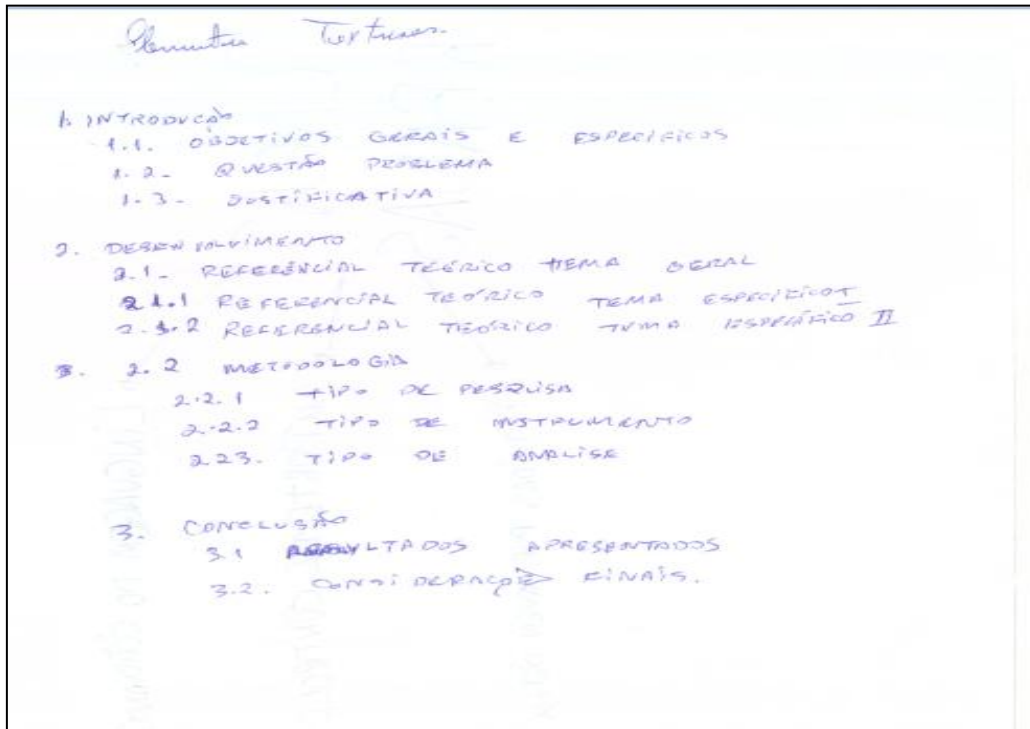 Elementos Textuais.
1. INTRODUCÃO
1.1. OBJETIVOS GERAIS E ESPECIFICOS
1.2- QUESTÃO PROBLEMA
1.3- JUSTIFICATIVA
2. DESENVOLVIMENTO
2.1- REFERÊNCIAL TEÓRICO TEMA GERAL
2.1.1 REFERENCIAL TEÓRICO TEMA ESPECIFICO I
2.1.2 REFERENCIAL TEÓRICO TEMA ESPECÍFICO II
3. 2.2 METODOLOGIA
2.2.1 TIPO DE PESQUISA
2.2.2 TIPO DE INSTRUMENTO
2.23. TIPO DE ANALISE
3. CONCLUSÃO
3.1 RESULTADOS APRESENTADOS
3.2. CONSIDERAÇÕES FINAIS.